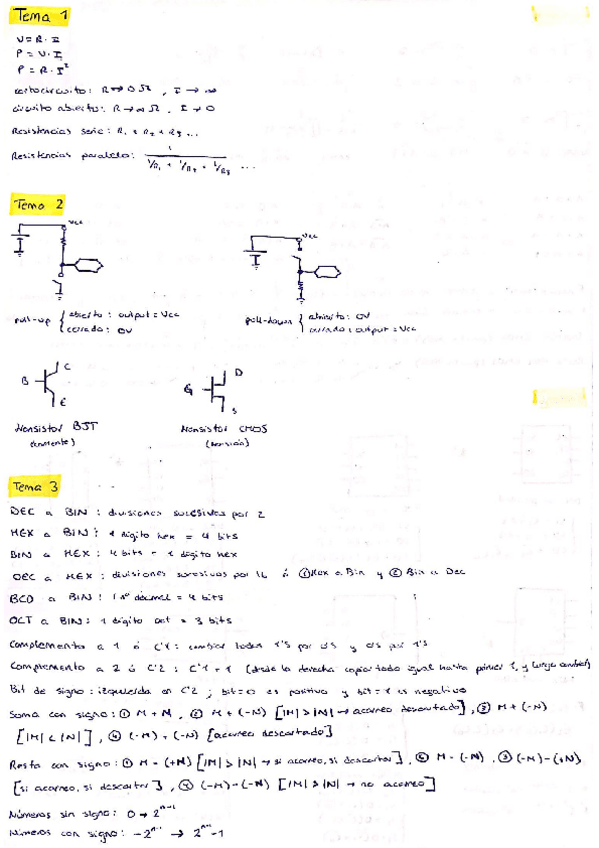 Tema 1
V = R · I
P = V · I
P = R · I²
cortocircuito: R → 0 Ω, I → ∞
circuito abierto: R → ∞ Ω, I → 0
Resistencias serie: R₁ + R₂ + R₃ ...
Resistencias paralelo: 1 / (1/R₁ + 1/R₂ + 1/R₃ ...)
Tema 2
Vcc
Vcc
pull-up { abierto: output = Vcc
cerrado: 0V
pull-down { abierto: 0V
cerrado: output = Vcc
B C E
G D S
transistor BJT
(corriente)
transistor CMOS
(tensión)
Tema 3
DEC a BIN: divisiones sucesivas por 2
HEX a BIN: 1 digito hex = 4 bits
BIN a HEX: 4 bits = 1 digito hex
DEC a HEX: divisiones sucesivas por 16 ó ① Hex a Bin y ② Bin a Dec
BCD a BIN: 1 nº decimal = 4 bits
OCT a BIN: 1 digito oct = 3 bits
Complemento a 1 ó C'1: cambiar todos 1's por 0's y 0's por 1's
Complemento a 2 ó C'2: C'1 + 1 (desde la derecha copiar todo igual hasta primer 1, y luego cambiar)
Bit de signo: izquierda en C'2; bit=0 es positivo y bit=1 es negativo
Suma con signo: ① M + N, ② M + (-N) [|M| > |N| → acarreo descartado], ③ M + (-N)
[|M| < |N|], ④ (-M) + (-N) [acarreo descartado]
Resta con signo: ① M - (+N) [|M| > |N| → si acarreo, si descartar], ② M - (-N), ③ (-M) - (+N)
[si acarreo, si descartar], ④ (-M) - (-N) [|M| > |N| → no acarreo]
Números sin signo: 0 → 2ⁿ⁻¹
Números con signo: -2ⁿ⁻¹ → 2ⁿ⁻¹-1